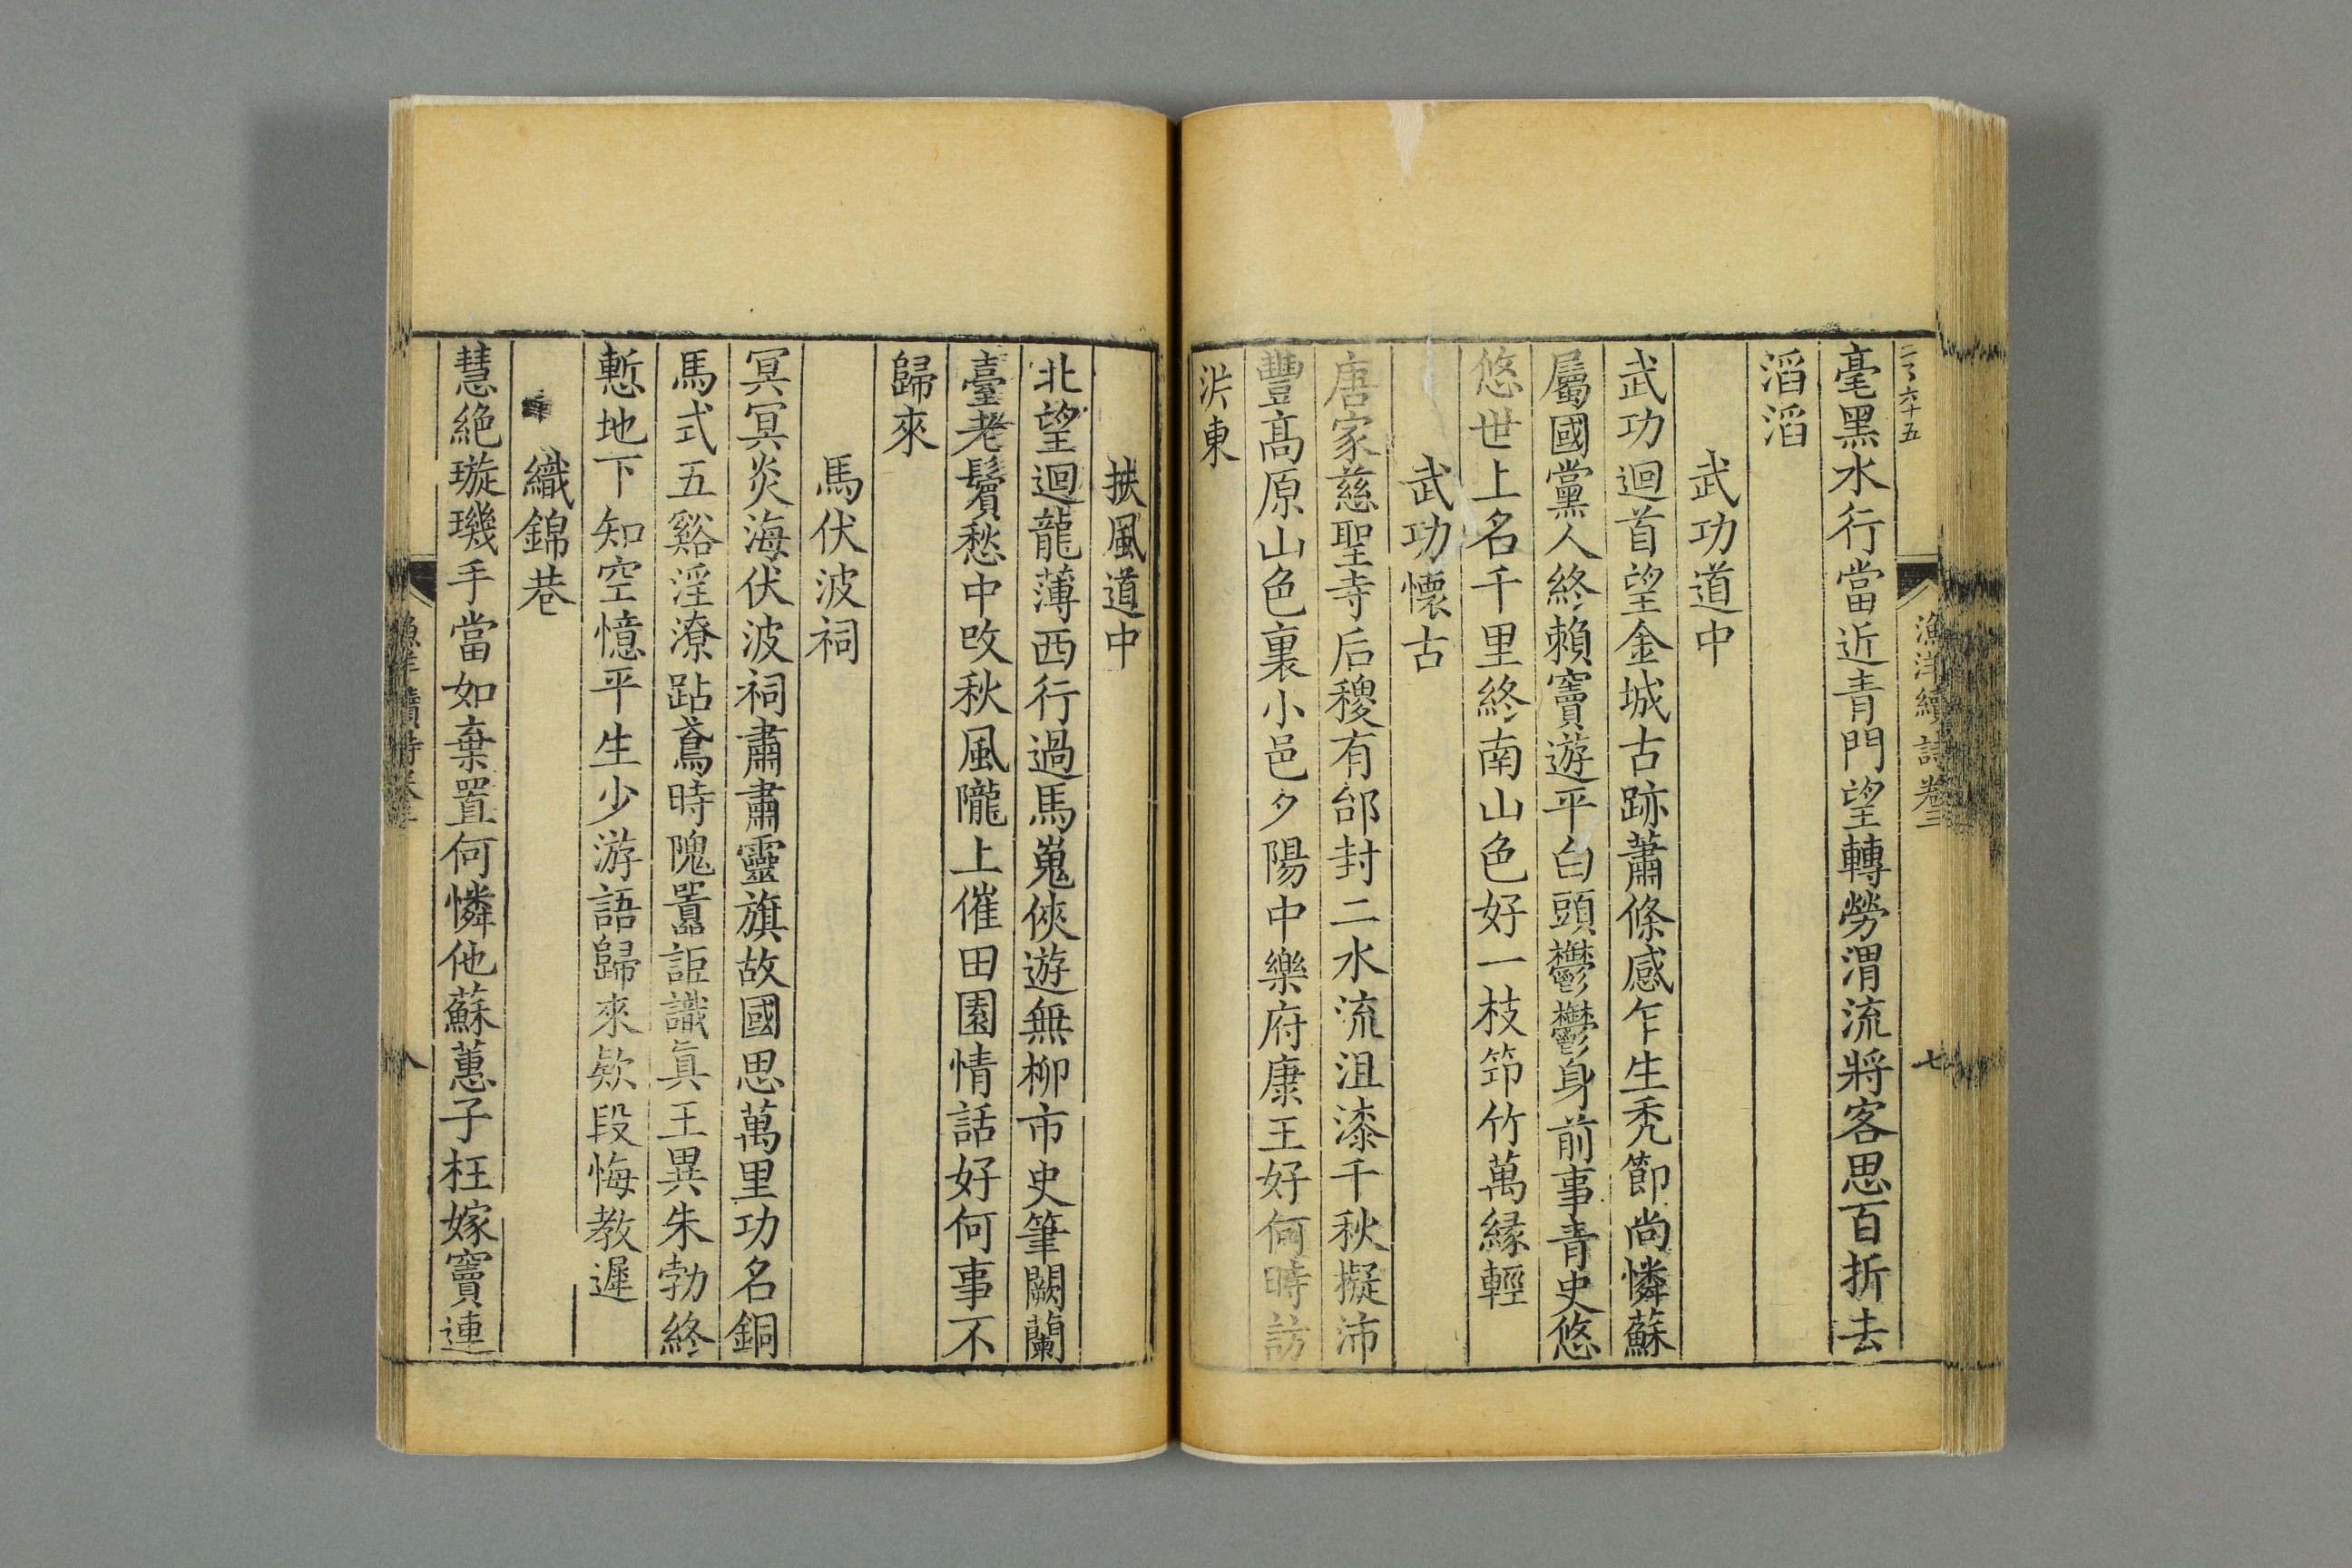 二百六十五
漁洋續詩卷三
七
亳黑水行當近青門望轉勞渭流將客思百折去
滔滔
武功道中
武功迴首望金城古跡蕭條感乍生禿節尚憐蘇
屬國黨人終賴竇遊平白頭鬱鬱身前事青史悠
悠世上名千里終南山色好一枝笻竹萬緣輕
武功懷古
唐家慈聖寺后稷有邰封二水流沮漆千秋擬沛
豐高原山色裏小邑夕陽中樂府康王好何時訪
浂東
扶風道中
北望迴龍薄西行過馬嵬俠遊無柳市史筆闕蘭
臺老鬢愁中改秋風隴上催田園情話好何事不
歸來
馬伏波祠
冥冥炎海伏波祠肅肅靈旗故國思萬里功名銅
馬式五谿淫潦跕鳶時隗囂詎識真王異朱勃終
慙地下知空憶平生少游語歸來欵段悔教遲
織錦巷
慧絕璇璣手當如棄置何憐他蘇蕙子枉嫁竇連
漁洋續詩卷三
八